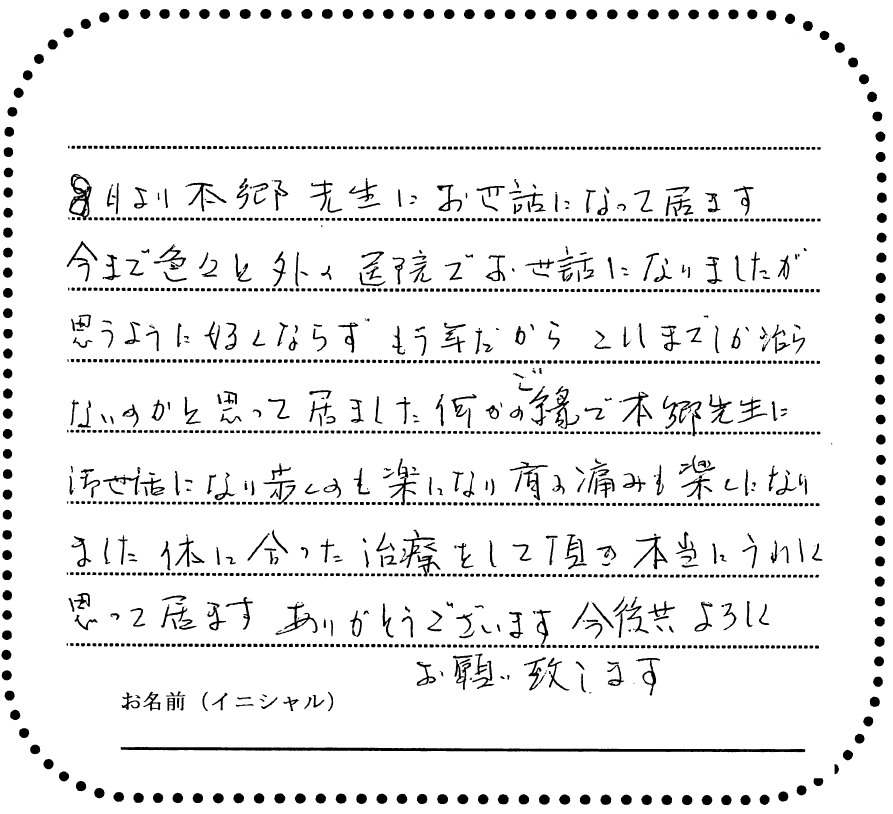 8月より本郷先生にお世話になって居ます
今まで色々と外の医院でお世話になりましたが
思うように好くならず もう年だから これまでしか治ら
ないのかと思って居ました何かのご縁で本郷先生に
御世話になり歩くのも楽になり肩の痛みも楽くになり
ました体に合った治療をして頂き本当にうれしく
思って居ます ありがとうございます 今後共よろしく
お願い致します
お名前（イニシャル）